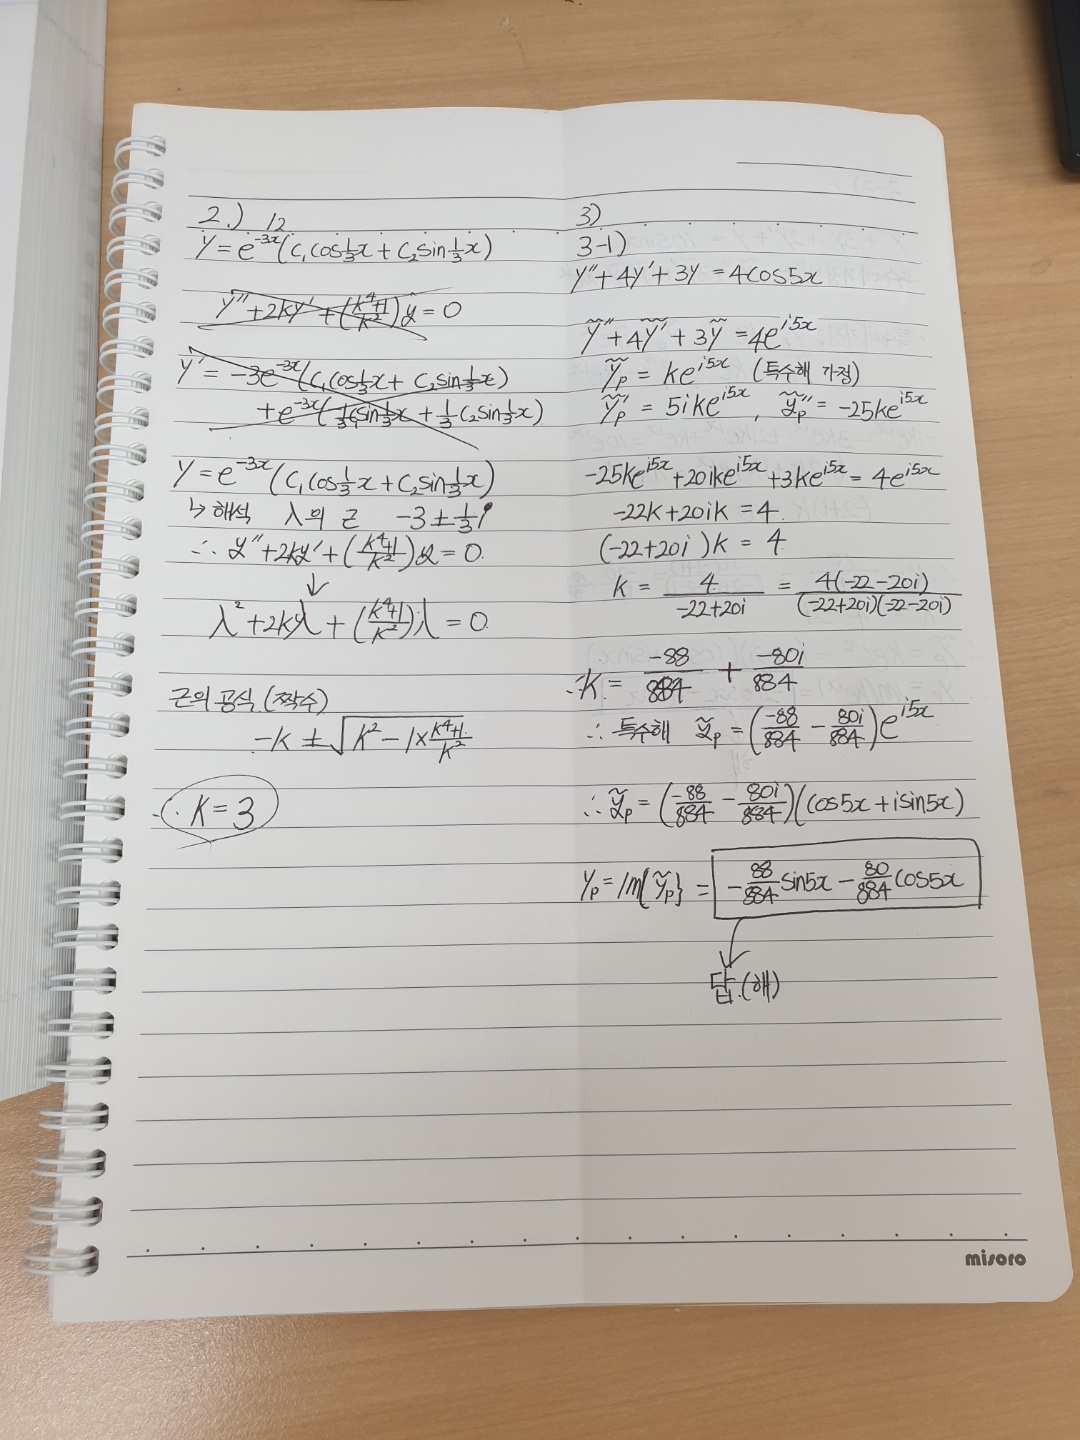 2.) 12
y = e^{-3x}(C₁cos⅓x + C₂sin⅓x)
y'' + 2ky' + (\frac{k⁴+1}{k²})y = 0
y' = -3e^{-3x}(C₁cos⅓x + C₂sin⅓x)
y = e^{-3x}(C₁cos⅓x + C₂sin⅓x)
↳ 해석 λ의 근 -3 ± ⅓i
∴ y'' + 2ky' + (\frac{k⁴+1}{k²})y = 0
↓
λ² + 2kλ + (\frac{k⁴+1}{k²})λ = 0
근의 공식 (짝수)
-k ± √(k² - 1×\frac{k⁴+1}{k²})
∴ k = 3
3)
3-1)
y'' + 4y' + 3y = 4cos5x
ỹ'' + 4ỹ' + 3ỹ = 4e^{i5x}
ỹp = ke^{i5x} (특수해 가정)
ỹp' = 5ike^{i5x}, ỹp'' = -25ke^{i5x}
-25ke^{i5x} + 20ike^{i5x} + 3ke^{i5x} = 4e^{i5x}
-22k + 20ik = 4
(-22+20i)k = 4
k = \frac{4}{-22+20i} = \frac{4(-22-20i)}{(-22+20i)(-22-20i)}
∴ k = \frac{-88}{884} + \frac{-80i}{884}
∴ 특수해 ỹp = (\frac{-88}{884} - \frac{80i}{884})e^{i5x}
∴ ỹp = (\frac{-88}{884} - \frac{80i}{884})(cos5x + isin5x)
yp = Im{ỹp} = -\frac{88}{884}sin5x - \frac{80}{884}cos5x
답.(해)
misoro